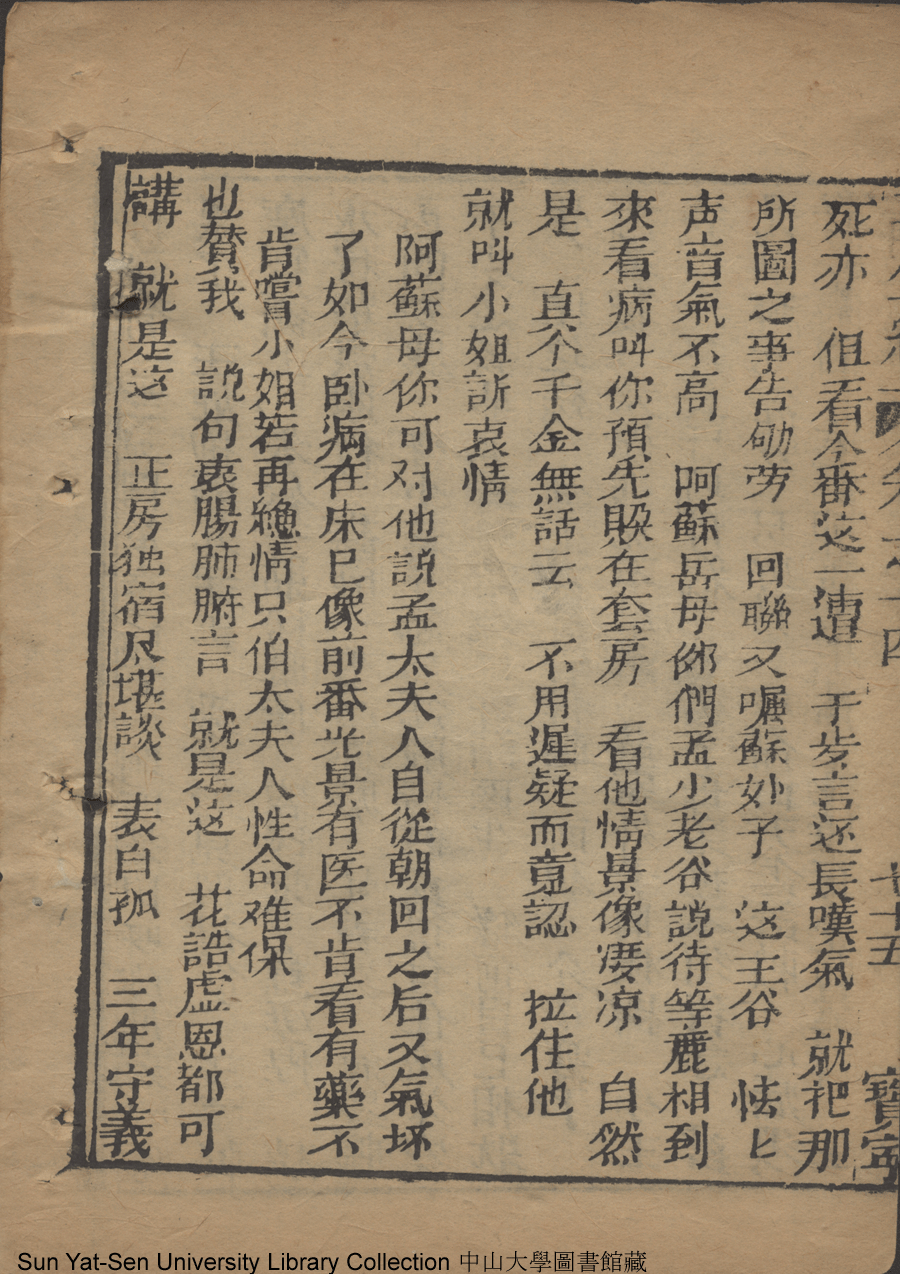 七十五
寶宁
死亦　但看今番这一遭　于步言还長嘆氣　就把那
所圖之事告劬劳　回聯又囑蘇妙子　这王谷　怯匕
声音氣不高　呵蘇岳母你們孟少老谷說待等鹿相到
來看病叫你預先躲在套房　看他情景像凄凉　自然
是　直个千金無話云　不用遲疑而竟認　拉住他
就叫小姐訴哀情
阿蘇母你可对他說孟太夫人自從朝回之后又氣坏
了如今卧病在床已像前番光景有医不肯看有藥不
肯嘗小姐若再絶情只伯太夫人性命难保
也賛我　説句衷腸肺腑言　就是这　花誥虚恩都可
講　就是这　正房独宿尽堪談　表白孤　三年守義
Sun Yat-Sen University Library Collection 中山大學圖書館藏